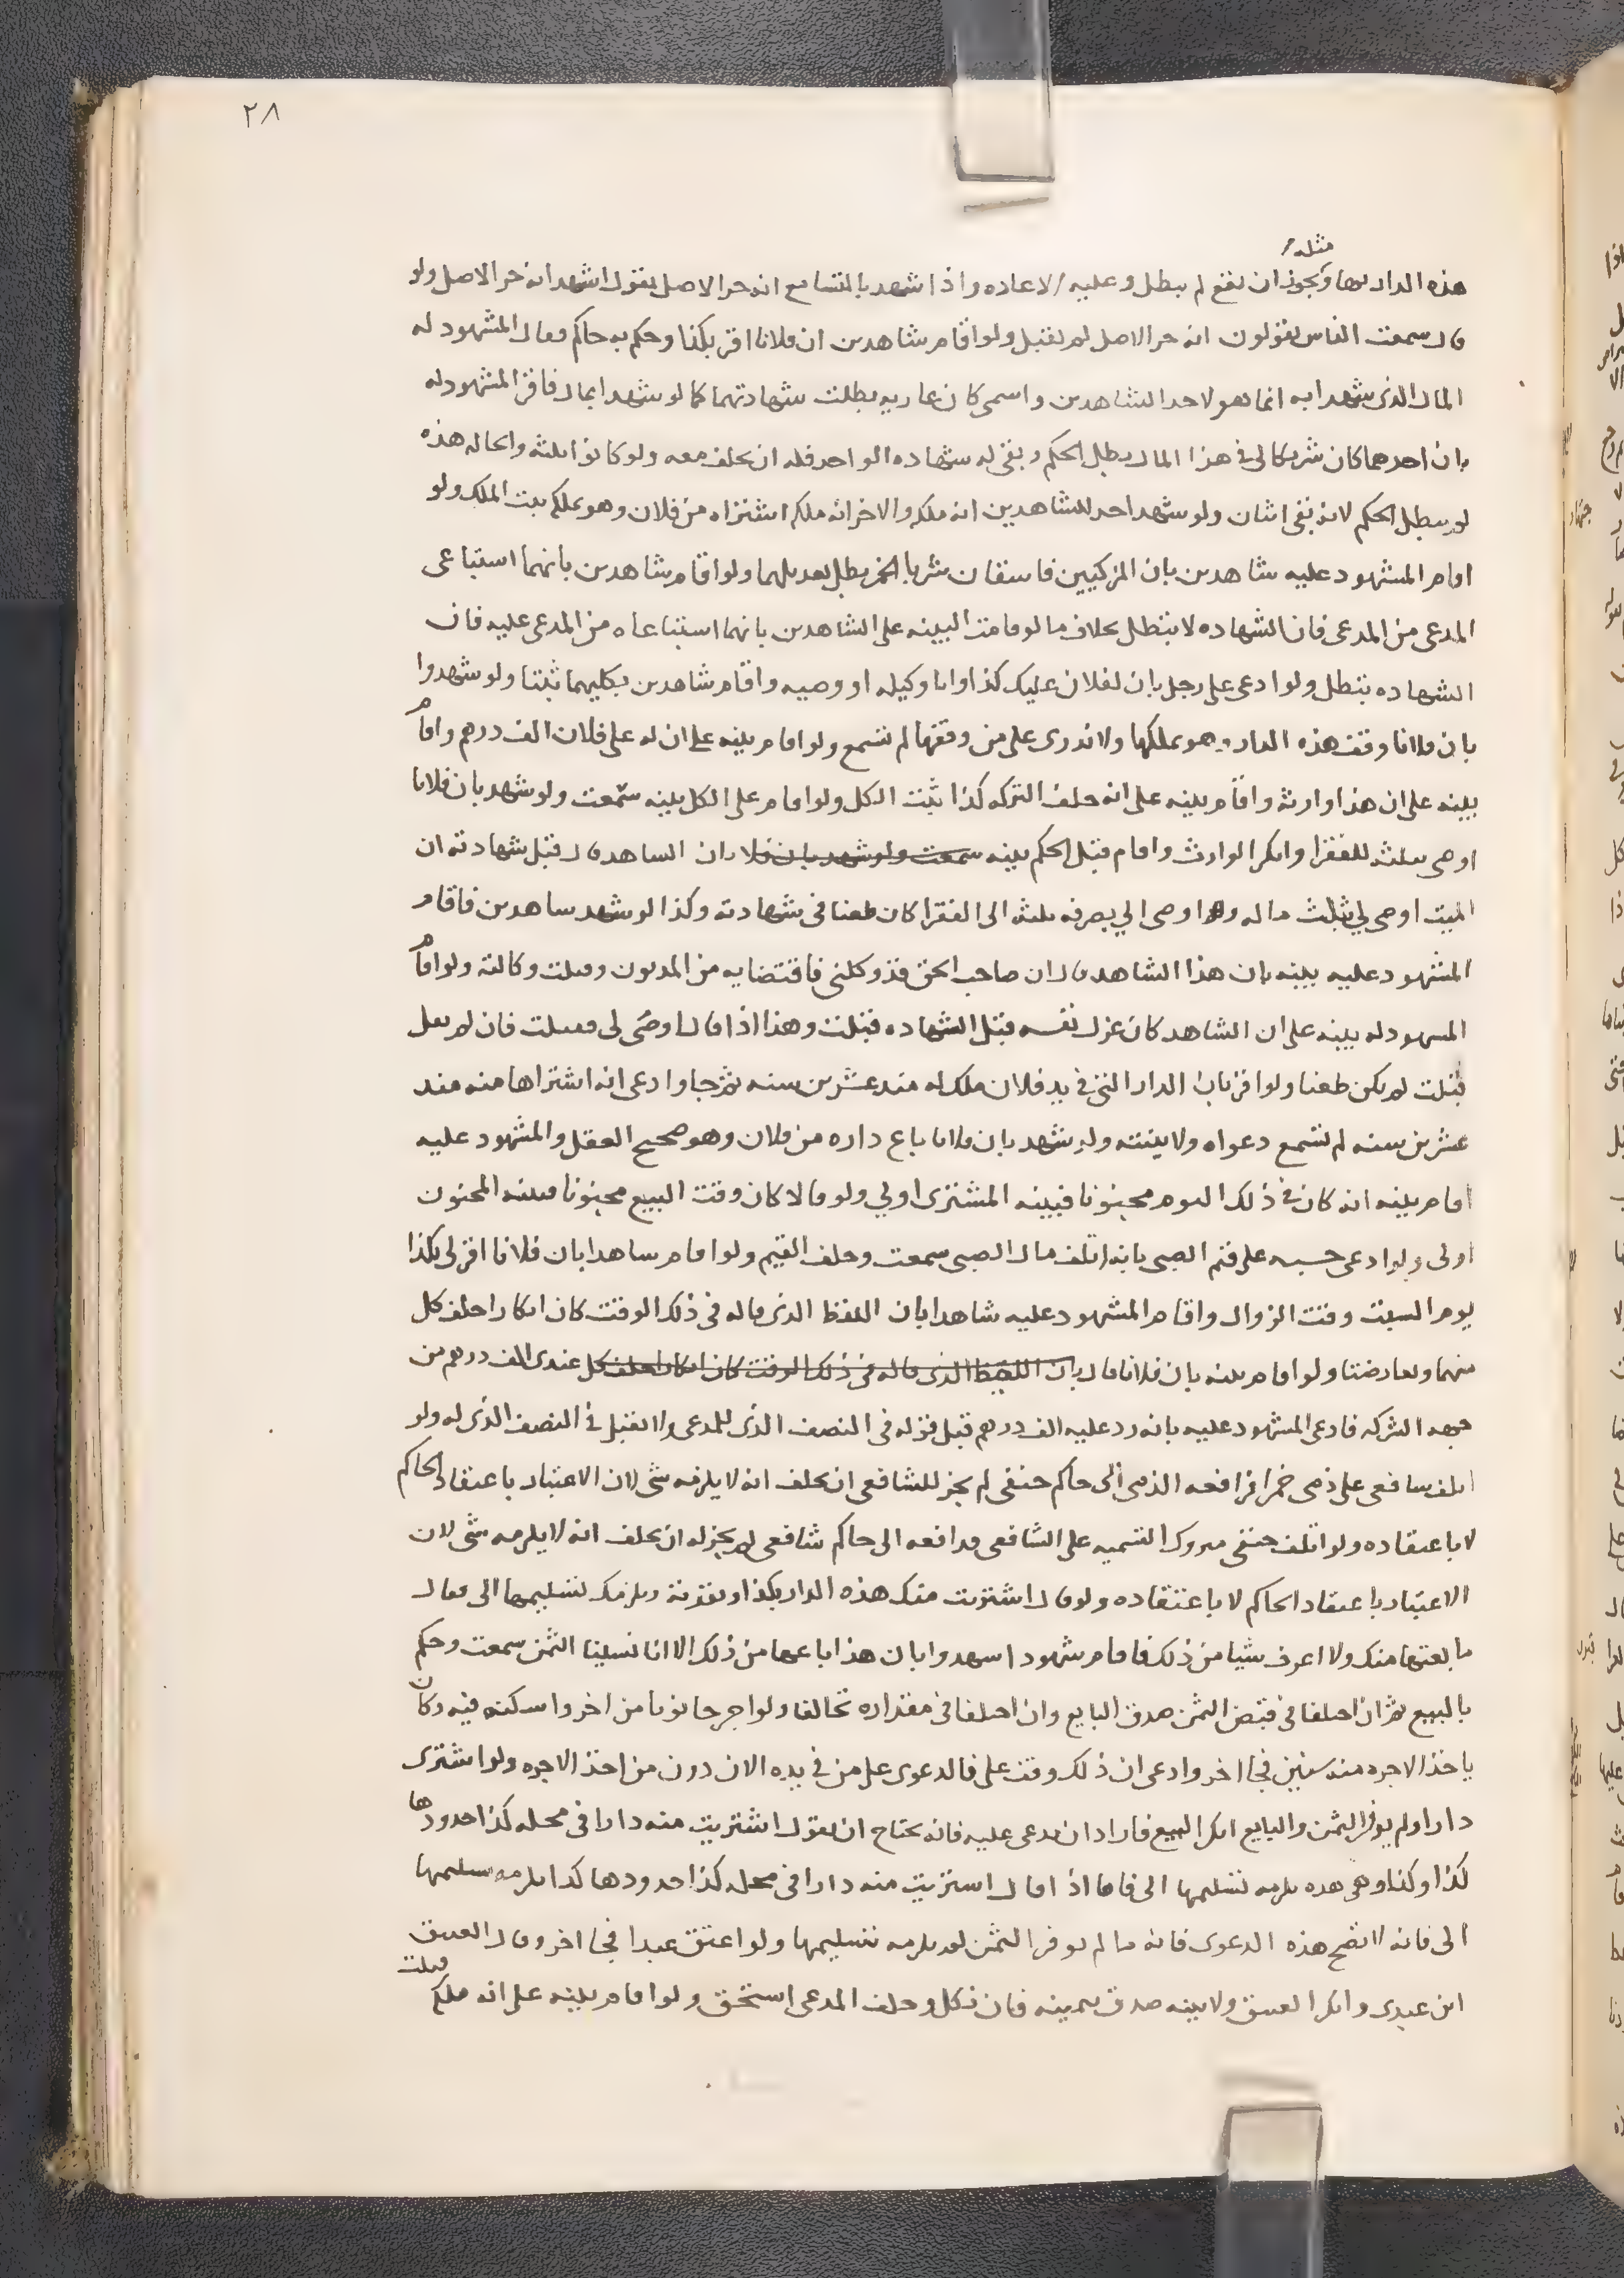 ٢٨
مثله
هذه الدار بها ويجوز ان يقع لم يبطل وعليه الاعاده واذا شهد بالتسامع انه حر الاصل يقول اشهد انه حر الاصل ولو
قال سمعت الناس يقولون انه حر الاصل لم يقبل ولو اقام شاهدين ان فلانا اقر بكذا وحكم به حاكم فقال المشهود له
المال الذى شهدا به انما هو لاحد الشاهدين واسمى كان عاريه بطلت شهادتهما كما لو شهدا بمال فاقر المشهود له
بان احدهما كان شريكا لى في هذا المال يبطل الحكم وبقى له شهاده الواحد فله ان يحلف معه ولو كانوا ثلثه والحاله هذه
لم يبطل الحكم لانه بقى اثنان ولو شهد احد الشاهدين انه ملكه والاخر انه ملكه اشتراه من فلان وهو يملكه يثبت الملك ولو
اقام المشهود عليه شاهدين بان المزكيين فاسقان شربا الخمر بطل تعديلهما ولو اقام شاهدين بانهما استباعى
المدعى من المدعى فان الشهاده لا تبطل بخلاف ما لو قامت البينه على الشاهدين بانهما استباعاه من المدعى عليه فان
الشهاده تبطل ولو ادعى على رجل بان لفلان عليك كذا وانا وكيله او وصيه واقام شاهدين بكليهما ثبتا ولو شهدوا
بان فلانا وقف هذه الدار وهو يملكها ولا ندرى على من وقفها لم تسمع ولو اقام بينه على ان له على فلان الف درهم واقام
بينه على ان هذا وارثه واقام بينه على انه خلف التركه كذا يثبت الكل ولو اقام على الكل بينه سمعت ولو شهد بان فلانا
اوصى بثلثه للفقرا وانكر الوارث واقام قبل الحكم بينه سمعت ولو شهد بان فلا بان الشاهد قال قبل شهادته ان
الميت اوصى لي بثلث ماله او اوصى الي بصرفه ثلثه الى الفقرا كان طعنا في شهادته وكذا لو شهد شاهدين فاقام
المشهود عليه بينه بان هذا الشاهد قال ان صاحب الحق قد وكلنى فاقتضايه من المديون وقبلت وكالته ولو اقام
المشهود له بينه على ان الشاهد كان عزل نفسه قبل الشهاده قبلت وهذا اذا قال اوصى لى فقبلت فان لم يقل
قبلت لم يكن طعنا ولو اقر بان الدار التى في يد فلان ملك له منذ عشرين سنه ثم جا وادعى انه اشتراها منه منذ
عشرين سنه لم تسمع دعواه ولا بينته ولو شهد بان فلانا باع داره من فلان وهو صحيح العقل والمشهود عليه
اقام بينه انه كان في ذلك اليوم مجنونا فبينه المشترى اولي ولو قالا كان وقت البيع مجنونا فبينه المجنون
اولى ولو ادعى حسبه على قيم الصبى بانه اتلف مال الصبى سمعت وحلف القيم ولو اقام شاهدا بان فلانا اقر لى بكذا
يوم السبت وقت الزوال واقام المشهود عليه شاهدا بان اللفظ الذى قاله في ذلك الوقت كان انكارا حلف كل
منهما وتعارضتا ولو اقام بينه بان فلانا قال بان اللفظ الذى قاله في ذلك الوقت كان انكارا حلف كل عندى الف درهم من
جهه الشركه فادعى المشهود عليه بانه رد عليه الف درهم قبل قوله في النصف الذى للمدعى ولا تقبل في النصف الذى له ولو
اتلف شافعى على ذمى خمرا فرافعه الذمى الى حاكم حنفى لم يجز للشافعى ان يحلف انه لا يلزمه شى لان الاعتبار باعتقاد الحاكم
لا باعتقاده ولو اتلف حنفى متروك التسميه على الشافعى فرافعه الى حاكم شافعى لم يجز له ان يحلف انه لا يلزمه شى لان
الاعتبار باعتقاد الحاكم لا باعتقاده ولو قال اشتريت منك هذه الدار بكذا ونقدته ويلزمك تسليمها الى فقال
ما بعتها منك ولا اعرف شيا من ذلك فاقام شهودا شهدوا بان هذا باعها من ذلك الا انا نسينا الثمن سمعت وحكم
بالبيع ثم ان اختلفا في قبض الثمن صدق البايع وان اختلفا في مقداره تحالفا ولو اجر حانوتا من اخر واسكنه فيه وكان
ياخذ الاجره منه سنين فجا اخر وادعى ان ذلك وقف على فالدعوى على من في يده الان دون من اخذ الاجره ولو اشترى
دارا ولم يوفر الثمن والبايع انكر البيع فاراد ان يدعى عليه فانه يحتاج ان يقول اشتريت منه دارا في محله كذا حدودها
كذا وكذا وهى هذه يلزمه تسليمها الى فاما اذا قال اشتريت منه دارا في محله كذا حدودها كذا يلزمه تسليمها
الى فانه لا تصح هذه الدعوى فانه ما لم يوفر الثمن لم يلزمه تسليمها ولو اعتق عبدا فجا اخر وقال العتيق
ابن عبدى وانكر العتيق ولا بينه صدق بيمينه فان نكل وحلف المدعى استحق ولو اقام بينه على انه ملكه قبلت